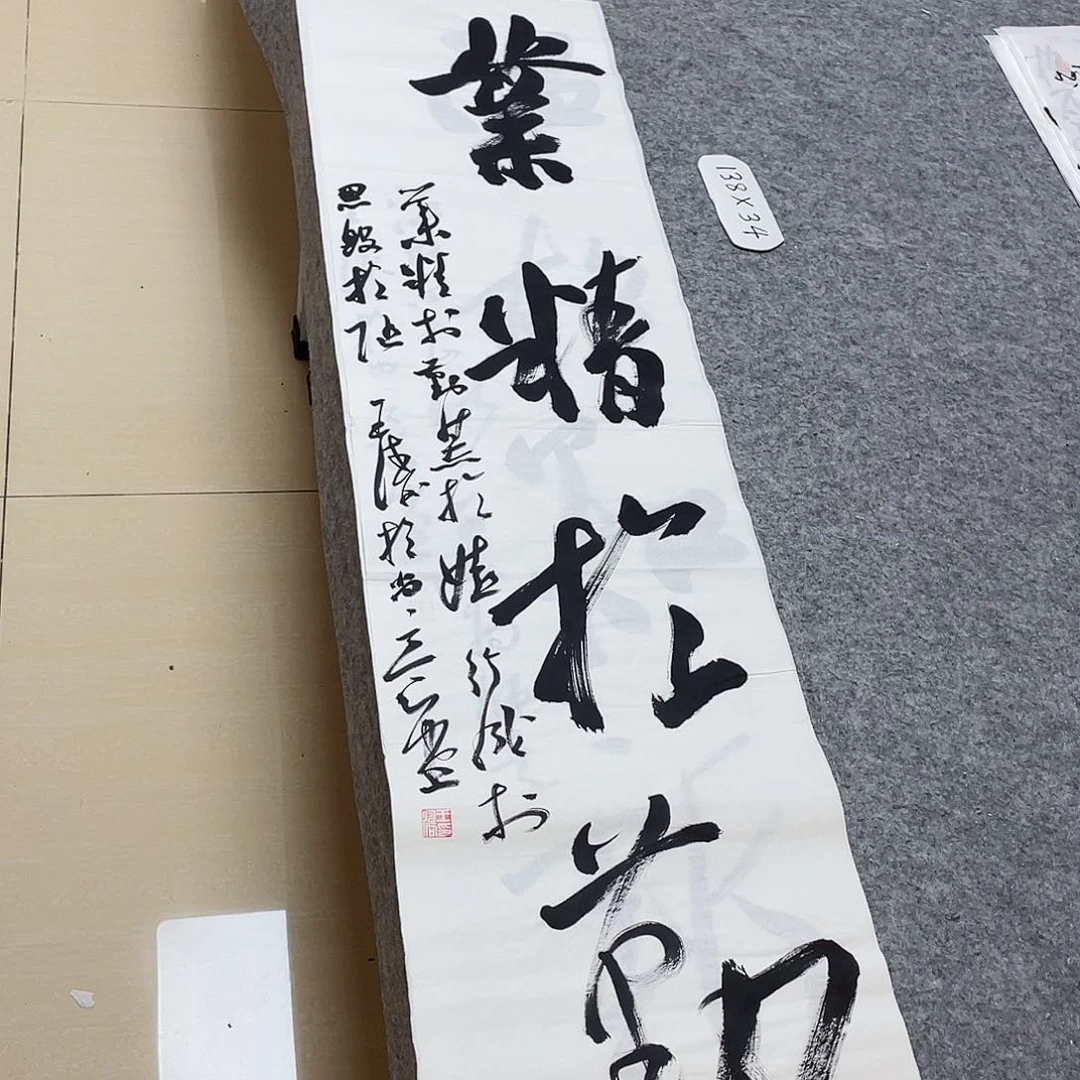 業精於勤
業精於勤荒於嬉行成於
思毀於随 王
138X34